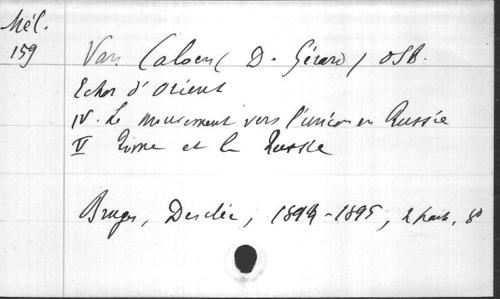 Mél.
159
Van Caloen (D. Gérard) OSB.
Echos d'Orient
IV. Le mouvement vers l'union en Russie
V Rome et la Russie
Bruges, Desclée, 1894-1895, 2 part, 8°